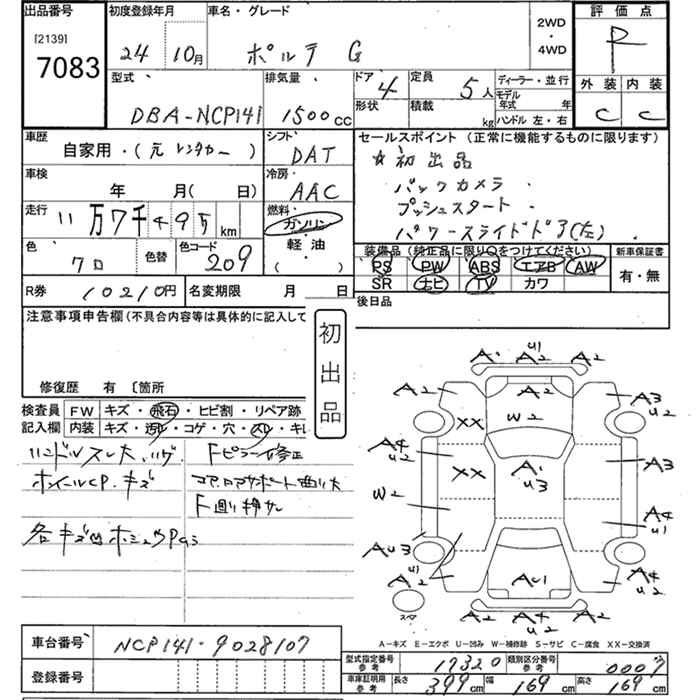 出品番号
[2139]
7083
初度登録年月
24 10月
車名・グレード
ポルテ G
2WD
・
4WD
評価点
R
外装 内装
C C
型式
DBA-NCP141
排気量
1500cc
ドア 4
定員 5人
形状
積載 kg
ディーラー・並行
モデル年式 年
ハンドル 左・右
車歴
自家用・(元レンタカー)
シフト
DAT
セールスポイント (正常に機能するものに限ります)
☆初出品
バックカメラ
プッシュスタート
パワースライドドア(左)
車検
年 月( 日)
冷房
AAC
走行
11万7千495km
燃料
ガソリン
・
軽油
( )
色
クロ
色替
色コード
209
装備品(純正品に限り○をつけてください)
PS PW ABS エアB AW
SR ナビ TV カワ
新車保証書
有・無
R券
10210円
名変期限 月 日
後日品
注意事項申告欄(不具合内容等は具体的に記入して
初出品
修復歴 有 〔箇所
検査員記入欄
FW キズ・飛石・ヒビ割・リペア跡
内装 キズ・汚レ・コゲ・穴・スレ・キレ
ハンドルスレ大、ハゲ
ホイールCP.キズ
Fピラー修正
コアロアサポート曲り大
F廻り押サレ
A1 U1 A2 A2
A2 A3 U2
XX W2
A4 U2 XX A1 U3 A3
W2 A4 U2
A4U3
U1 A2 AU1 A4 U2
A2 A4 U2 A2
スペア
A-キズ E-エクボ U-凹み W-補修跡 S-サビ C-腐食 XX-交換済
車台番号
NCP141-9028107
登録番号
型式指定番号 参考
17320
類別区分番号 参考
0007
車庫証明用 参考
長さ 399cm
幅 169cm
高さ 169cm